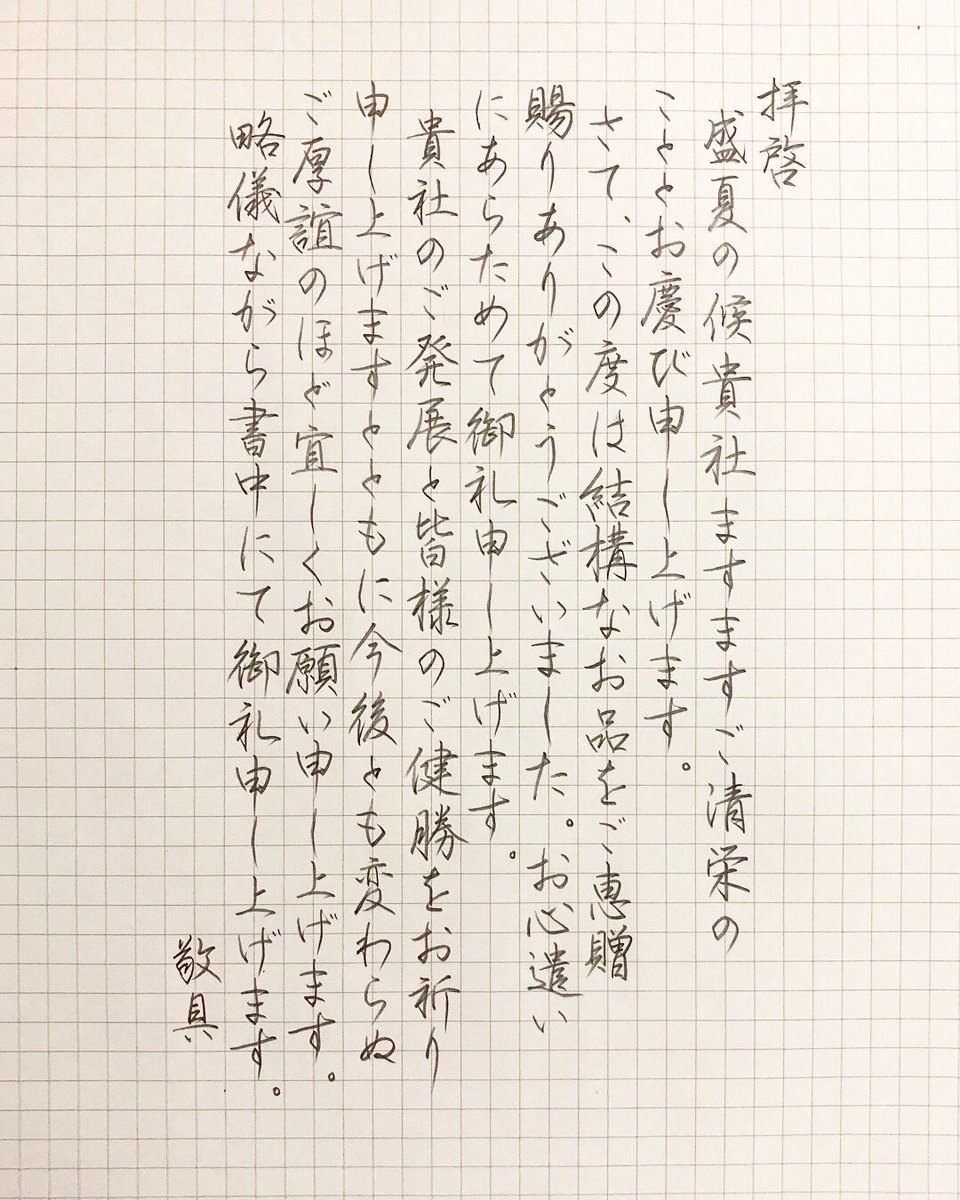 拝啓
盛夏の候貴社ますますご清栄の
こととお慶び申し上げます。
さて、この度は結構なお品をご恵贈
賜りありがとうございました。お心遣い
にあらためて御礼申し上げます。
貴社のご発展と皆様のご健勝をお祈り
申し上げますとともに今後とも変わらぬ
ご厚誼のほど宜しくお願い申し上げます。
略儀ながら書中にて御礼申し上げます。
敬具